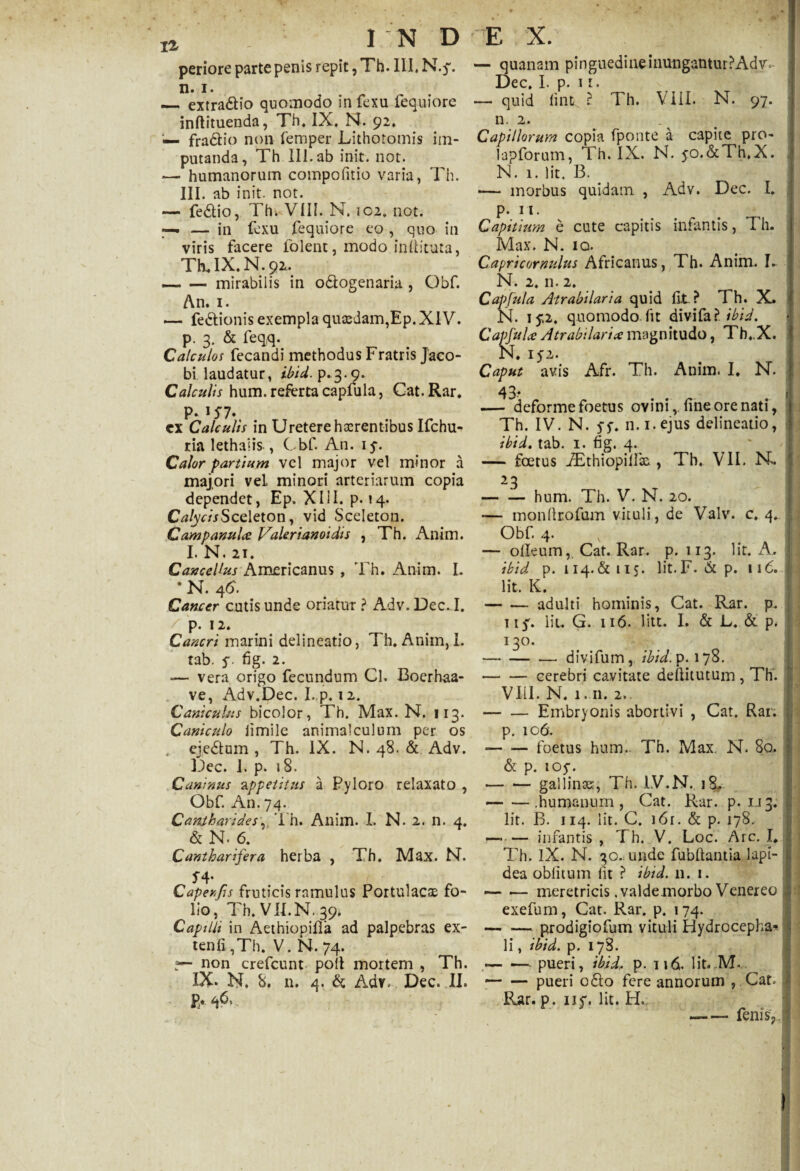 12 INDEX.
periore parte penis repit, Th. III. N. 5.
n. 1.
— extractio quomodo in sexu sequiore
instituenda, Th. IX. N. 92.
— fractio non semper Lithotomis im-
putanda, Th III. ab init. not.
— humanorum compositio varia, Th.
III. ab init. not.
— sectio, Th. VIII. N. 102. not.
— — in sexu sequiore eo, quo in
viris facere solent, modo instituta,
Th. IX. N. 92.
— — mirabilis in octogenaria, Obs.
An. 1.
— sectionis exempla quædam, Ep. XIV.
p. 3. & seqq.
Calculos secandi methodus Fratris Jaco-
bi laudatur, ibid. p. 3. 9.
Calculis hum. referta capsula, Cat. Rar.
p. 157.
ex Calculis in Uretere hærentibus Ischu-
ria lethalis, Obs. An. 15.
Calor partium vel major vel minor à
majori vel minori arteriarum copia
dependet, Ep. XIII. p. 14.
Calycis Sceleton, vid Sceleton.
Campanulæ Valerianoidis, Th. Anim.
I. N. 21.
Cancellus Americanus, Th. Anim. I.
N. 46.
Cancer cutis unde oriatur? Adv. Dec. I.
p. 12.
Cancri marini delineatio, Th. Anim, I.
tab. 5. fig. 2.
— vera origo secundum Cl. Boerhaa-
ve, Adv. Dec. I. p. 12.
Caniculus bicolor, Th. Max. N. 113.
Caniculo simile animalculum per os
ejectum, Th. IX. N. 48. & Adv.
Dec. I. p. 18.
Caninus appetitus à Pyloro relaxato,
Obs. An. 74.
Cantharides, Th. Anim. I. N. 2. n. 4.
& N. 6.
Cantharifera herba, Th. Max. N.
54.
Capensis fruticis ramulus Portulacæ fo-
lio, Th. VII. N. 39.
Capilli in Aethiopissa ad palpebras ex-
tensi, Th. V. N. 74.
— non crescunt post mortem, Th.
IX. N. 8. n. 4. & Adv. Dec. II.
p. 46.
— quanam pinguedine inungantur? Adv.
Dec. I. p. 11.
— quid sint? Th. VIII. N. 97.
n. 2.
Capillorum copia sponte à capite pro-
lapsorum, Th. IX. N. 50. & Th. X.
N. 1. lit. B.
— morbus quidam, Adv. Dec. I.
p. 11.
Capitium è cute capitis infantis, Th.
Max. N. 10.
Capricornulus Africanus, Th. Anim. I.
N. 2. n. 2.
Capsula Atrabilaria quid sit? Th. X.
N. 152. quomodo sit divisa? ibid.
Capsulæ Atrabilariæ magnitudo, Th. X.
N. 152.
Caput avis Afr. Th. Anim. I. N.
43.
— deforme foetus ovini, sine ore nati,
Th. IV. N. 55. n. 1. ejus delineatio,
ibid. tab. 1. fig. 4.
— foetus Æthiopissæ, Th. VII. N.
23
— — hum. Th. V. N. 20.
— monstrosum vituli, de Valv. c. 4.
Obs. 4.
— osseum, Cat. Rar. p. 113. lit. A.
ibid p. 114. & 115. lit. F. & p. 116.
lit. K.
— — adulti hominis, Cat. Rar. p.
115. lit. G. 116. litt. I. & L. & p.
130.
— — — divisum, ibid. p. 178.
— — cerebri cavitate destitutum, Th.
VIII. N. 1. n. 2.
— — Embryonis abortivi, Cat. Rar.
p. 106.
— — foetus hum. Th. Max. N. 80.
& p. 105.
— — gallinæ, Th. IV. N. 18.
— — humanum, Cat. Rar. p. 113.
lit. B. 114. lit. C. 161. & p. 178.
— — infantis, Th. V. Loc. Arc. I.
Th. IX. N. 30. unde substantia lapi-
dea obsitum sit? ibid. n. 1.
— — meretricis, valde morbo Venereo
exesum, Cat. Rar. p. 174.
— — prodigiosum vituli Hydrocepha-
li, ibid. p. 178.
— — pueri, ibid. p. 116. lit. M.
— — pueri octo fere annorum, Cat.
Rar. p. 115. lit. H.
— — senis,